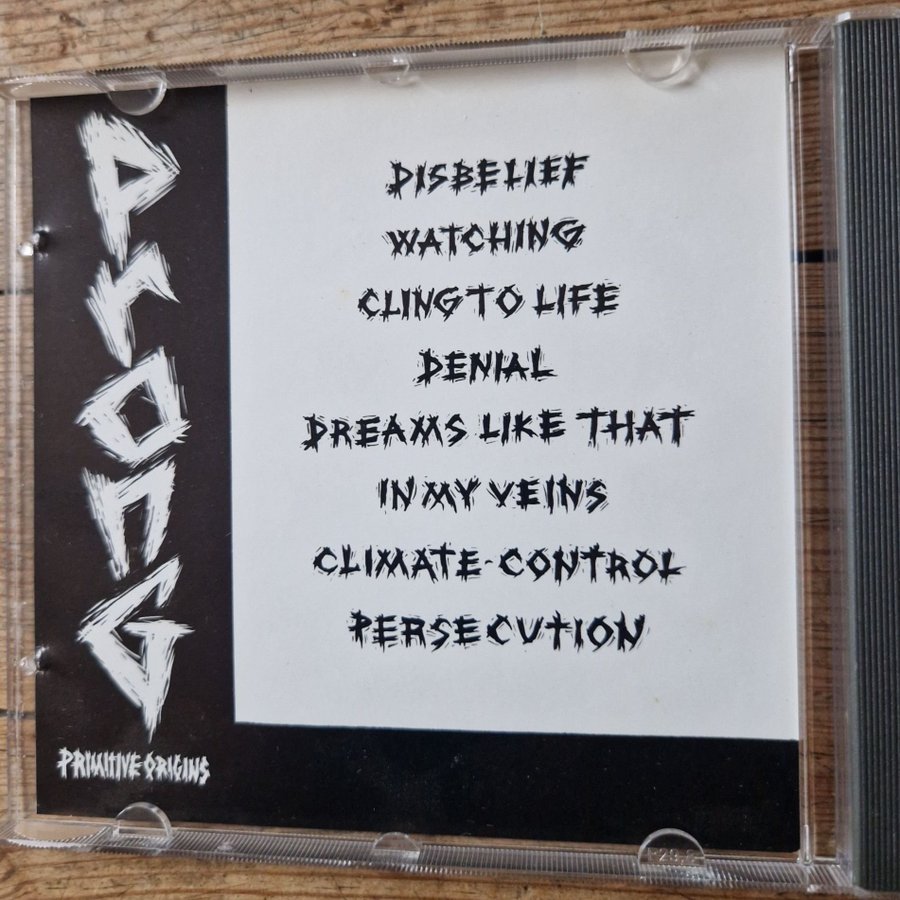 PRONG
PRIMITIVE ORIGINS
DISBELIEF
WATCHING
CLING TO LIFE
DENIAL
DREAMS LIKE THAT
IN MY VEINS
CLIMATE-CONTROL
PERSECUTION